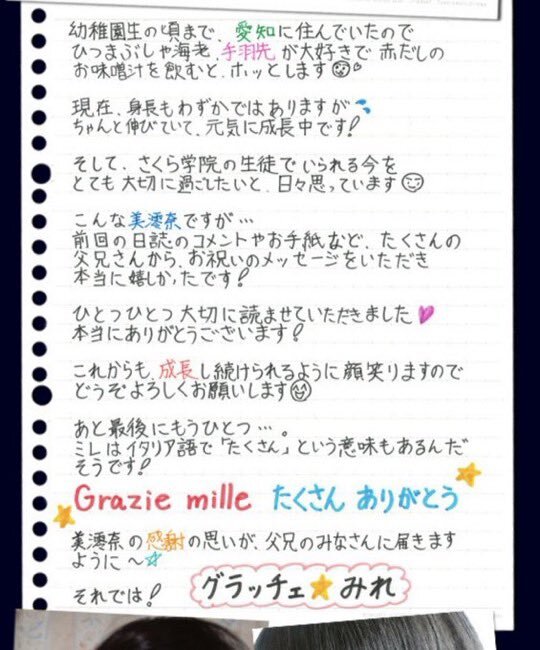 幼稚園生の頃まで、愛知に住んでいたので
ひつまぶしや海老、手羽先が大好きで 赤だしの
お味噌汁を飲むと、ホッとします
現在、身長もわずかではありますが
ちゃんと伸びていて、元気に成長中です!
そして、さくら学院の生徒でいられる今を
とても大切に過ごしたいと、日々思っています
こんな美澪奈ですが…
前回の日誌のコメントやお手紙など、たくさんの
父兄さんから、お祝いのメッセージをいただき
本当に嬉しかったです!
ひとつひとつ大切に読ませていただきました
本当にありがとうございます!
これからも、成長し続けられるように顔笑りますので
どうぞよろしくお願いします
あと最後にもうひとつ…。
ミレはイタリア語で「たくさん」という意味もあるんだ
そうです!
Grazie mille たくさん ありがとう
美澪奈の感謝の思いが、父兄のみなさんに届きます
ように〜
それでは!
グラッチェ★みれ